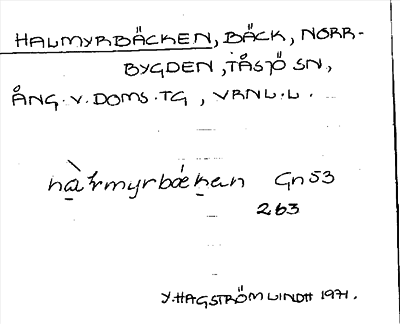 HALMYRBÄCKEN, BÄCK, NORR-
BYGDEN, TÅSJÖ SN,
ÅNG.V.DOMS.TG, VRNL.L.
Gn 53
263
Y. HAGSTRÖM LINDH 1971.